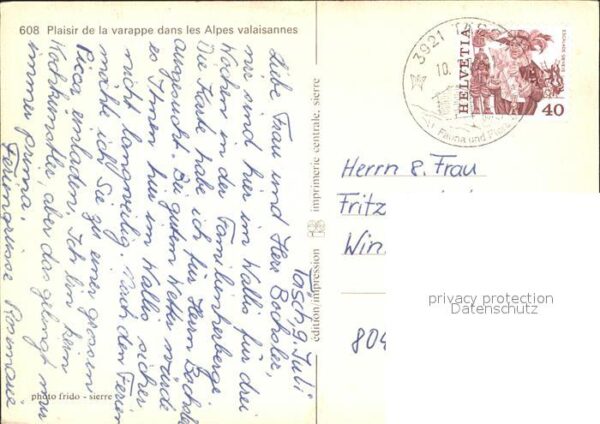 608 Plaisir de la varappe dans les Alpes valaisannes
Täsch, 9. Juli
Liebe Frau und Herr Bochsler,
wir sind hier im Wallis für drei
Wochen in der Familienherberge
Die Karte habe ich für Herrn Bochsler
ausgesucht. Bei gutem Wetter würde
es Ihnen hier im Wallis sicher
nicht langweilig. Nach den Ferien
möchte ich Sie zu einer grossen
Pizza einladen. Ich bin kein
Kochkünstler, aber das gelingt mir
immer prima.
Feriengrüsse Rosmarie
photo frido - sierre
édition/impression imprimerie centrale, sierre
3921 TÄSCH
10.
Fauna und Flora
HELVETIA
ESCALADE GENEVE
40
Herrn & Frau
Fritz
Win
804
privacy protection
Datenschutz